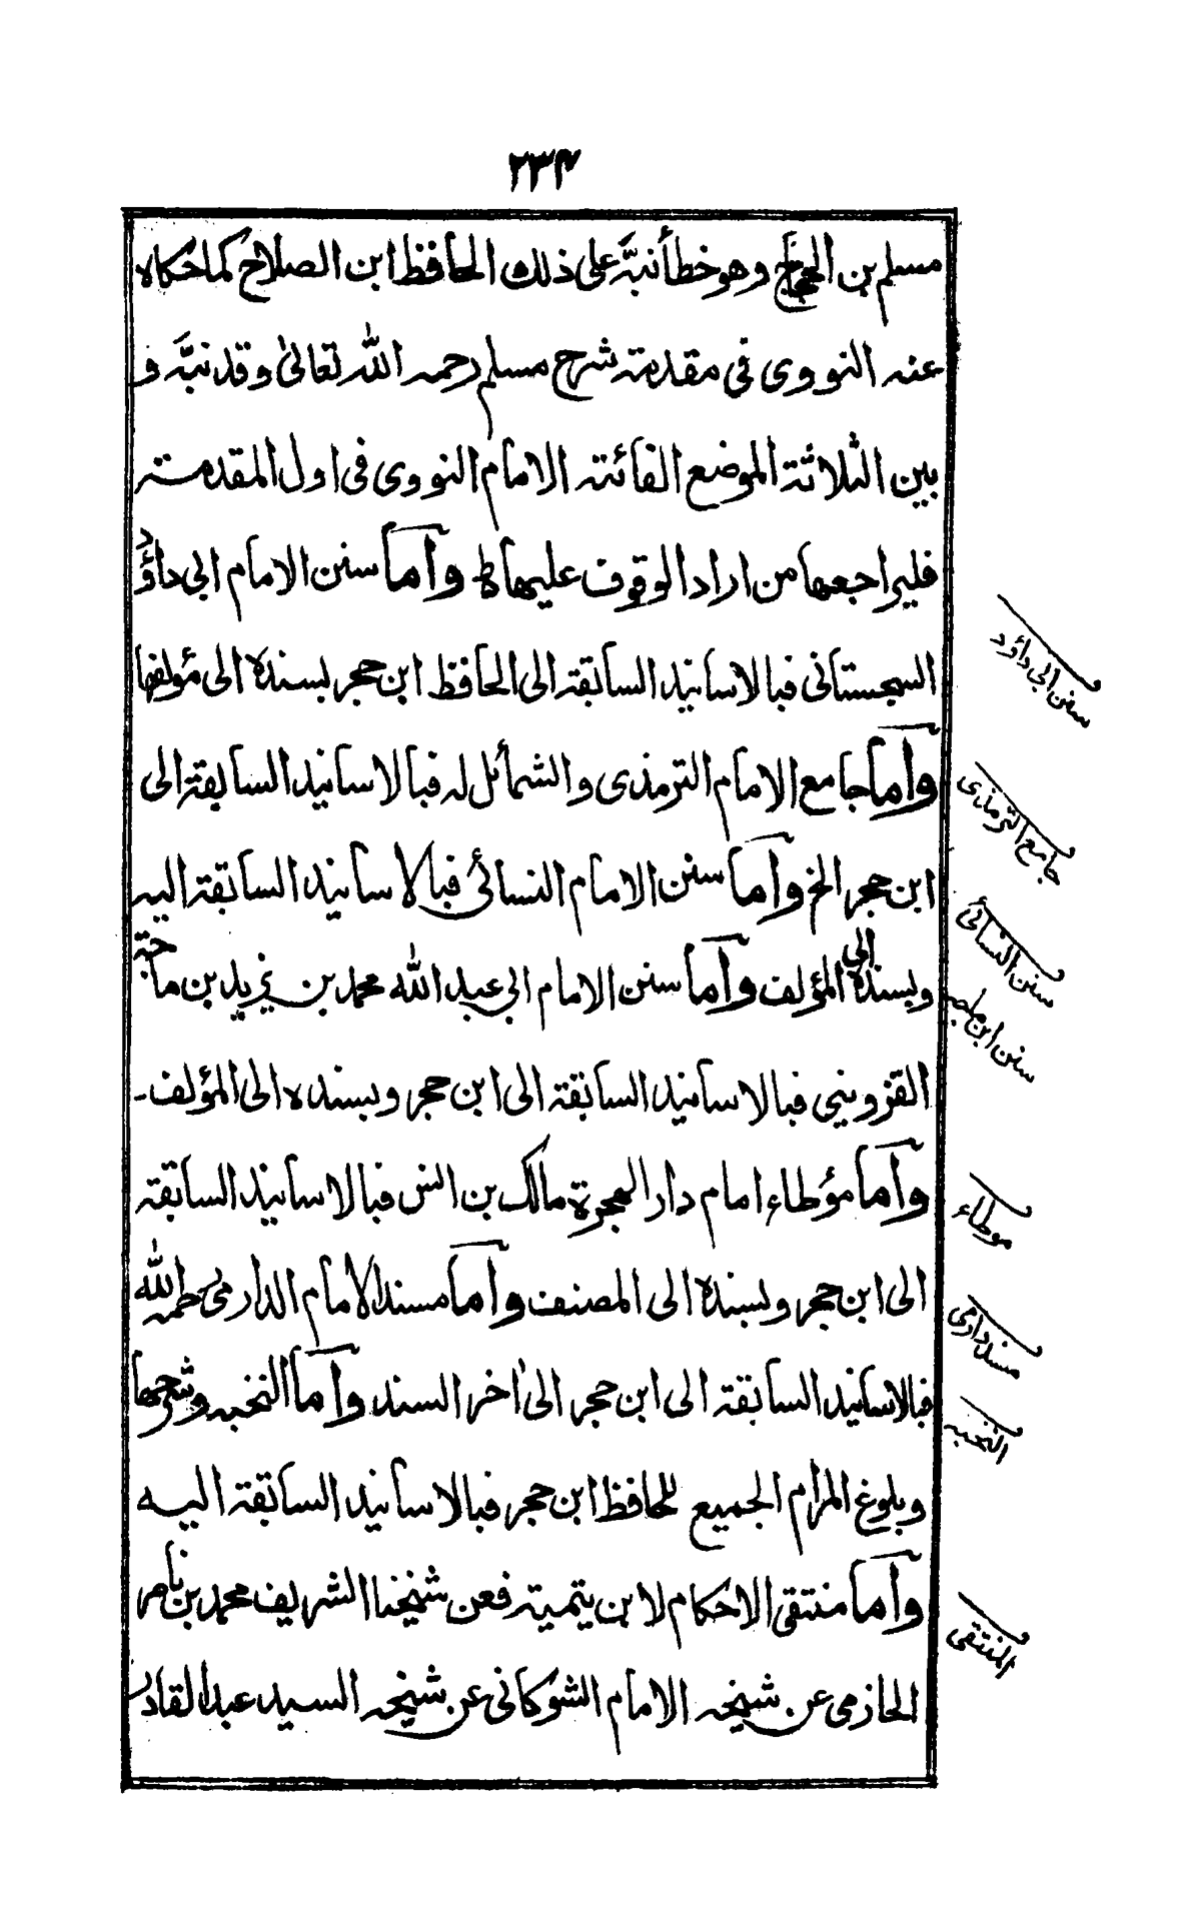 ۲۳۴
مسلم بن الحجاج وهو خطأ نبَّه على ذلك الحافظ ابن الصلاح كما حكاه
عنه النووى فى مقدمة شرح مسلم رحمه الله تعالىٰ وقد نبَّه و
بين الثلاثة الموضع الفائتة الامام النووى فى اول المقدمة
فليراجعها من اراد الوقوف عليها ط وآما سنن الامام ابى داؤد
السجستانى فبالاسانيد السابقة الى الحافظ ابن حجر بسنده الى مؤلفها
وآما جامع الامام الترمذى والشمائل له فبالاسانيد السابقة الى
ابن حجر الخ وآما سنن الامام النسائى فبالاسانيد السابقة اليه
وبسنده الى المؤلف وآما سنن الامام ابى عبد الله محمد بن يزيد بن ماجة
القزوينى فبالاسانيد السابقة الى ابن حجر وبسنده الى المؤلف-
وآما مؤطاء امام دار الهجرة مالك بن انس فبالاسانيد السابقة
الى ابن حجر وبسنده الى المصنف وآما مسند الامام الدارمى رحمه الله
فبالاسانيد السابقة الى ابن حجر الىٰ اخر السند وآما النخبه وشرحها
وبلوغ المرام الجميع للحافظ ابن حجر فبالاسانيد السابقة اليه
وآما منتقى الاحكام لابن يتمية فعن شيخنا الشريف محمد بن ناصر
الحازمى عن شيخه الامام الشوكانى عن شيخه السيد عبد القادر
سنن ابى داؤد
جامع الترمذى
سنن النسائى
سنن ابن ماجه
موطاء
مسند دارمى
النخبه
المنتقى